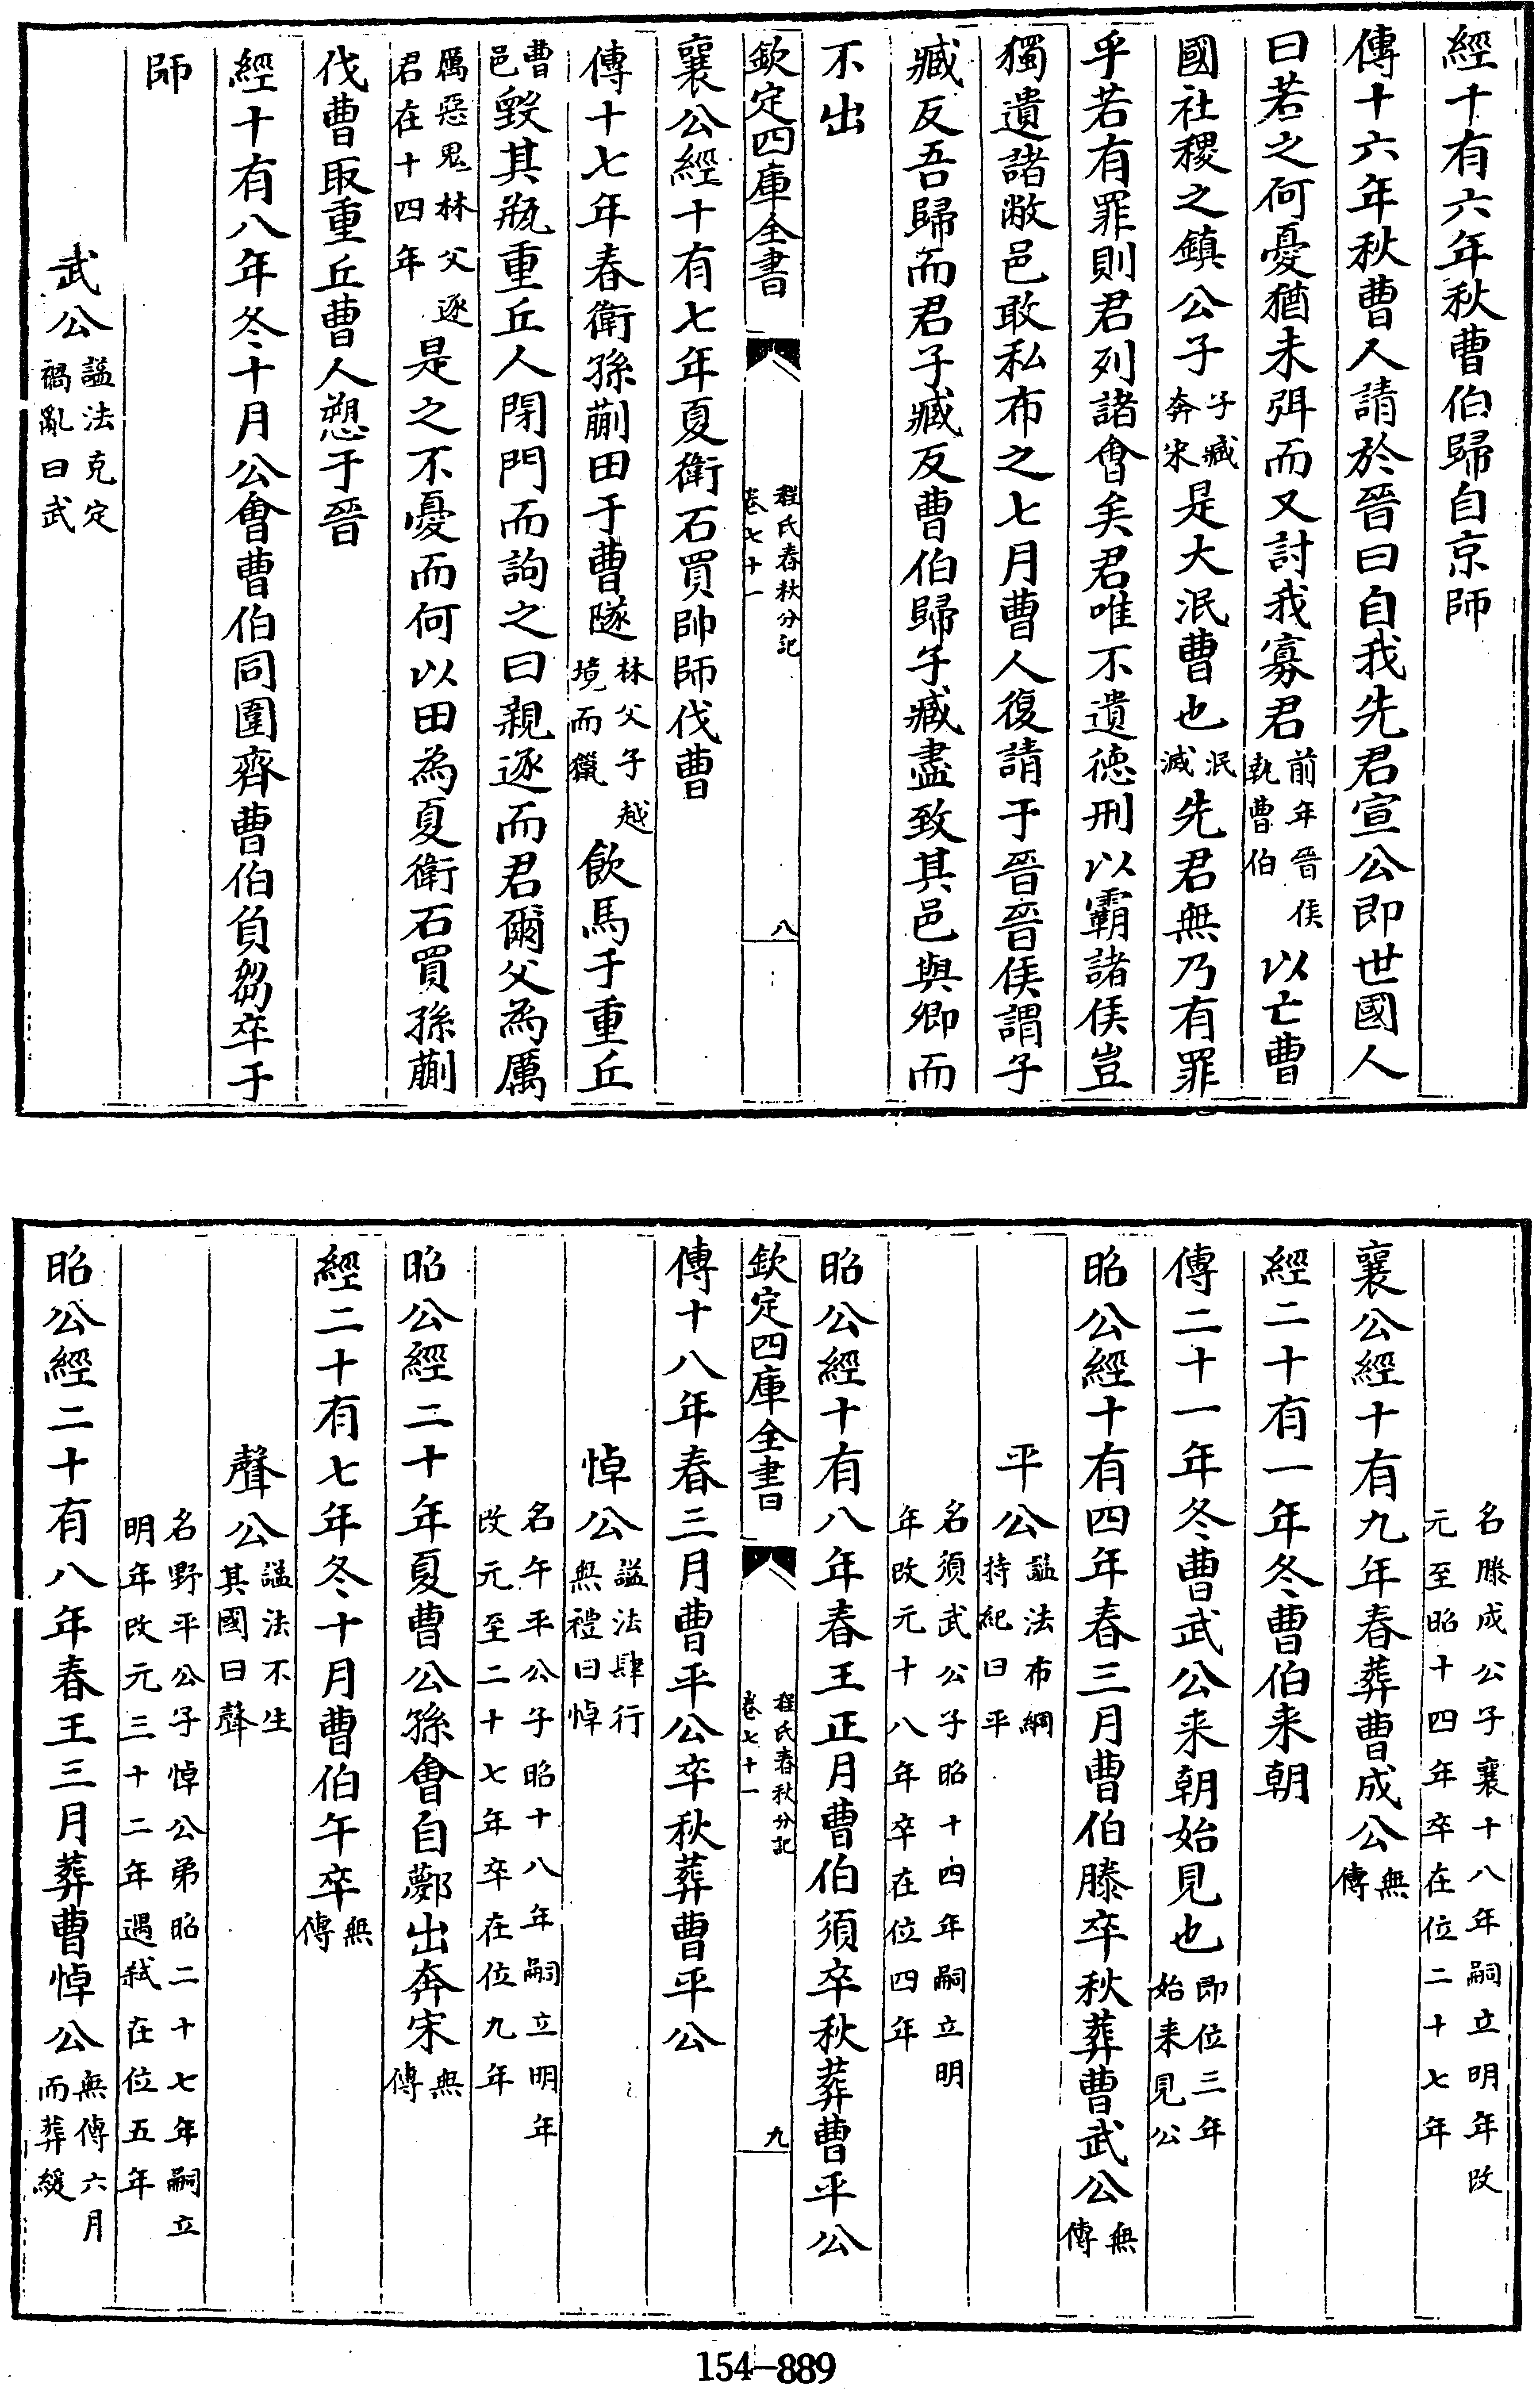 經十有六年秋曹伯歸自京師
傳十六年秋曹人請於晉曰自我先君宣公即世國人
曰若之何憂猶未弭而又討我寡君前年晉侯執曹伯以亡曹
國社稷之鎮公子子臧奔宋是大泯曹也泯滅先君無乃有罪
乎若有罪則君列諸會矣君唯不遺徳刑以霸諸侯豈
獨遺諸敝邑敢私布之七月曹人復請于晉晉侯謂子
臧反吾歸而君子臧反曹伯歸子臧盡致其邑與卿而
不出
欽定四庫全書 程氏春秋分記 卷七十一 八
襄公經十有七年夏衛石買帥師伐曹
傳十七年春衛孫蒯田于曹隧林父子越境而獵飲馬于重丘
曹邑毀其瓶重丘人閉門而詢之曰親逐而君爾父為厲
厲惡鬼林父逐君在十四年是之不憂而何以田為夏衛石買孫蒯
伐曹取重丘曹人愬于晉
經十有八年冬十月公會曹伯同圍齊曹伯負芻卒于
師
武公諡法克定禍亂曰武
名滕成公子襄十八年嗣立明年改元至昭十四年卒在位二十七年
襄公經十有九年春葬曹成公無傳
經二十有一年冬曹伯来朝
傳二十一年冬曹武公来朝始見也即位三年始来見公
昭公經十有四年春三月曹伯滕卒秋葬曹武公無傳
平公諡法布綱持紀曰平
名須武公子昭十四年嗣立明年改元十八年卒在位四年
昭公經十有八年春王正月曹伯須卒秋葬曹平公
欽定四庫全書 程氏春秋分記 卷七十一 九
傳十八年春三月曹平公卒秋葬曹平公
悼公諡法肆行無禮曰悼
名午平公子昭十八年嗣立明年改元至二十七年卒在位九年
昭公經二十年夏曹公孫會自鄸出奔宋無傳
經二十有七年冬十月曹伯午卒無傳
聲公諡法不生其國曰聲
名野平公子悼公弟昭二十七年嗣立明年改元三十二年遇弑在位五年
昭公經二十有八年春王三月葬曹悼公無傳六月而葬緩
154-889